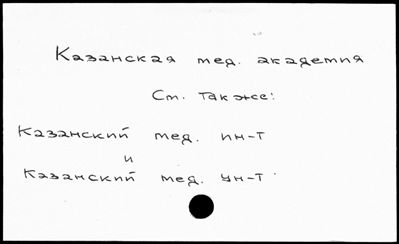 Казанская мед. академия
См. также:
Казанский мед. ин-т
и
Казанский мед. ун-т